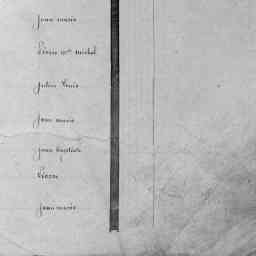 jean marie
Pierre m<sup>el</sup> michel
julien Louis
jean marie
jean baptiste
Pierre
jean marie